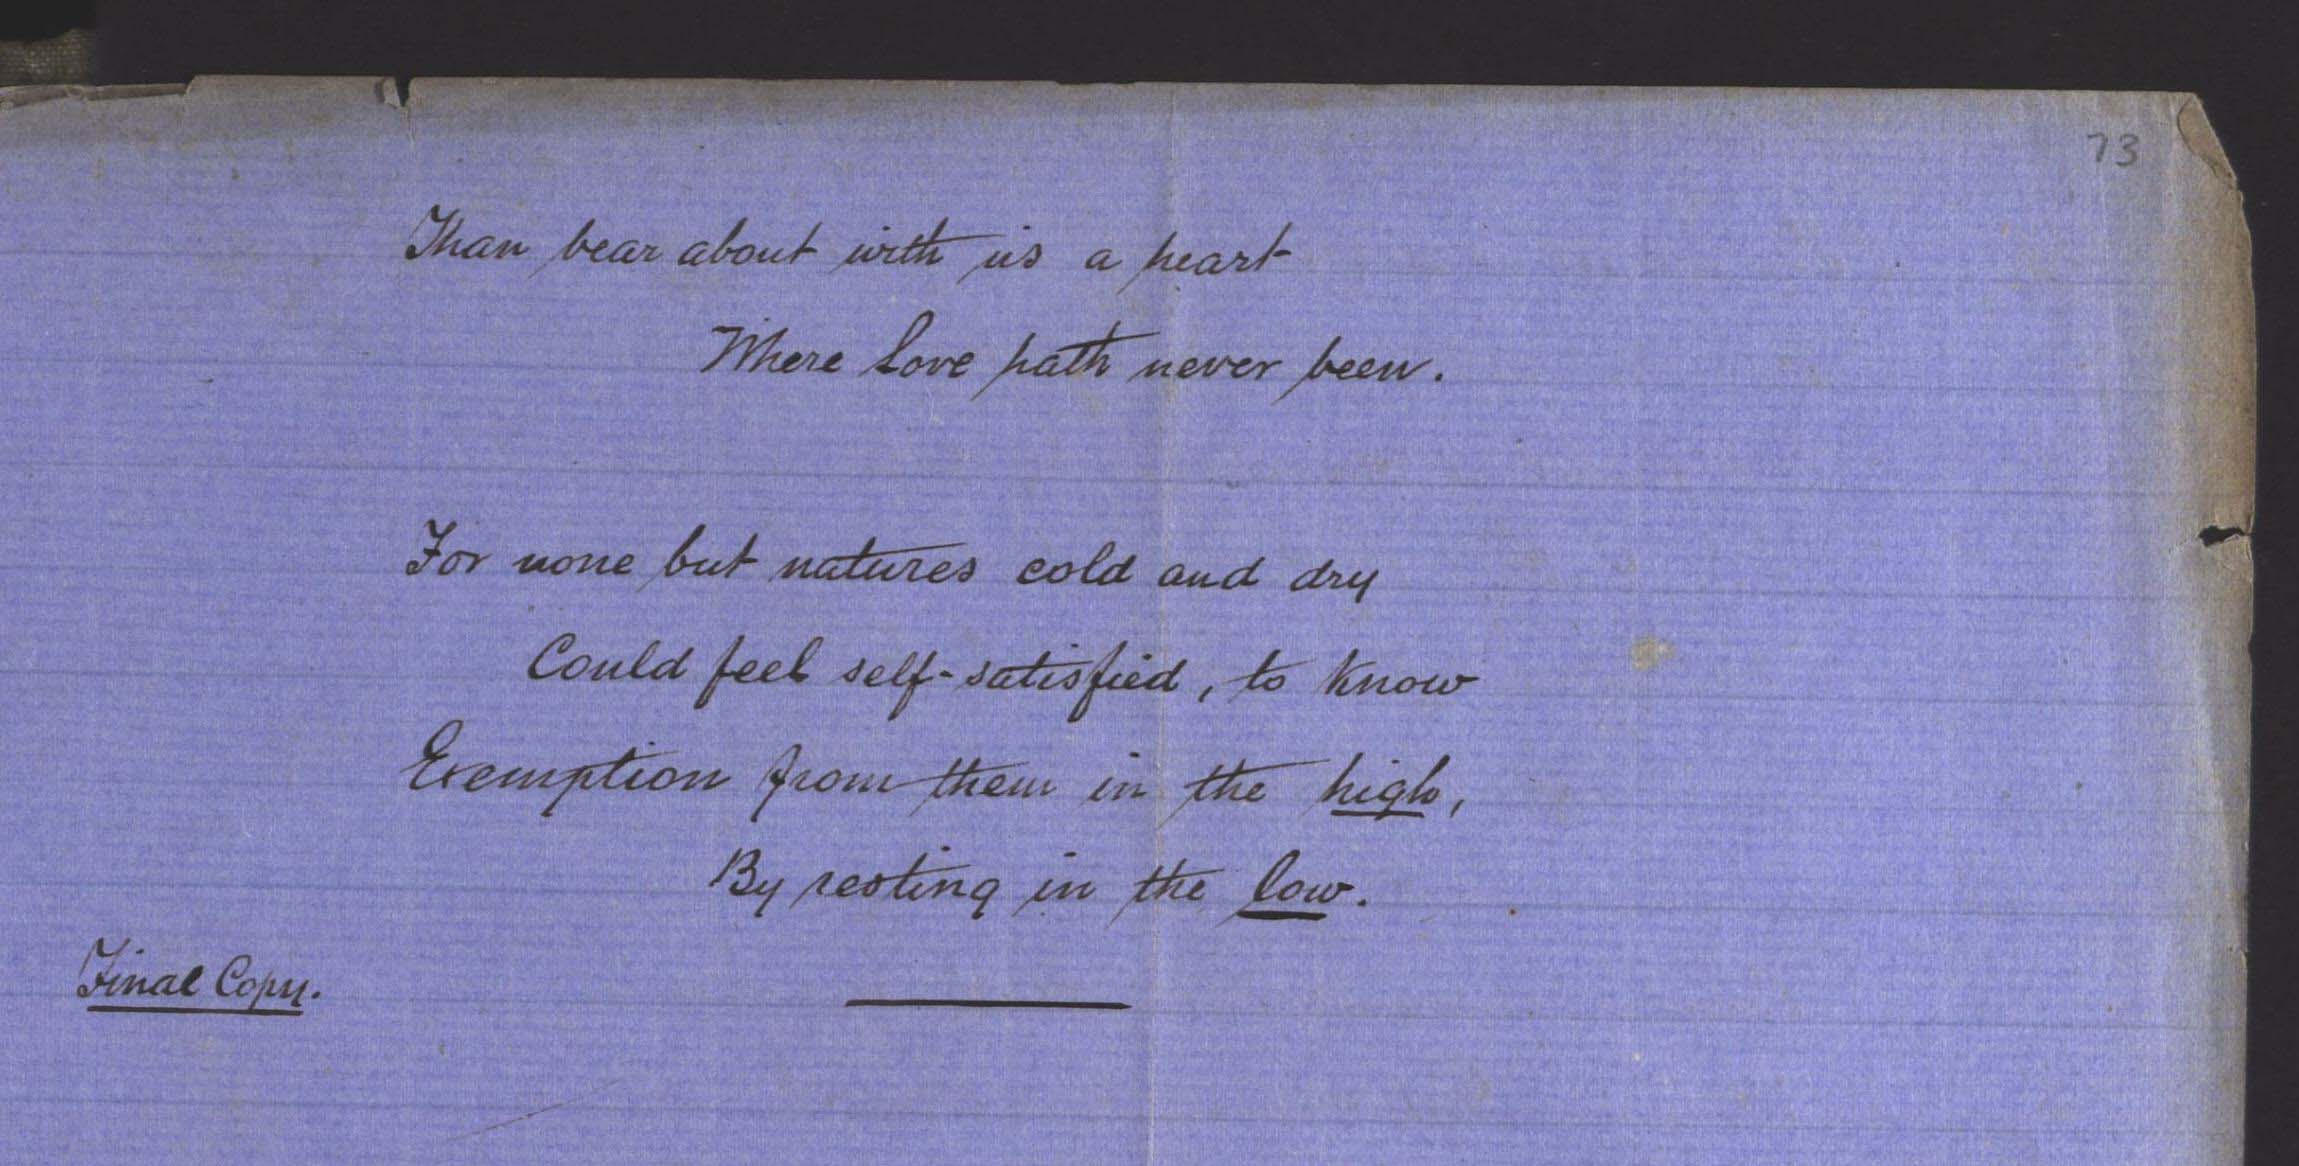 73
Than bear about with us a heart
Where Love hath never been.
For none but natures cold and dry
Could feel self-satisfied, to know
Exemption from them in the high,
By resting in the low.
Final Copy.